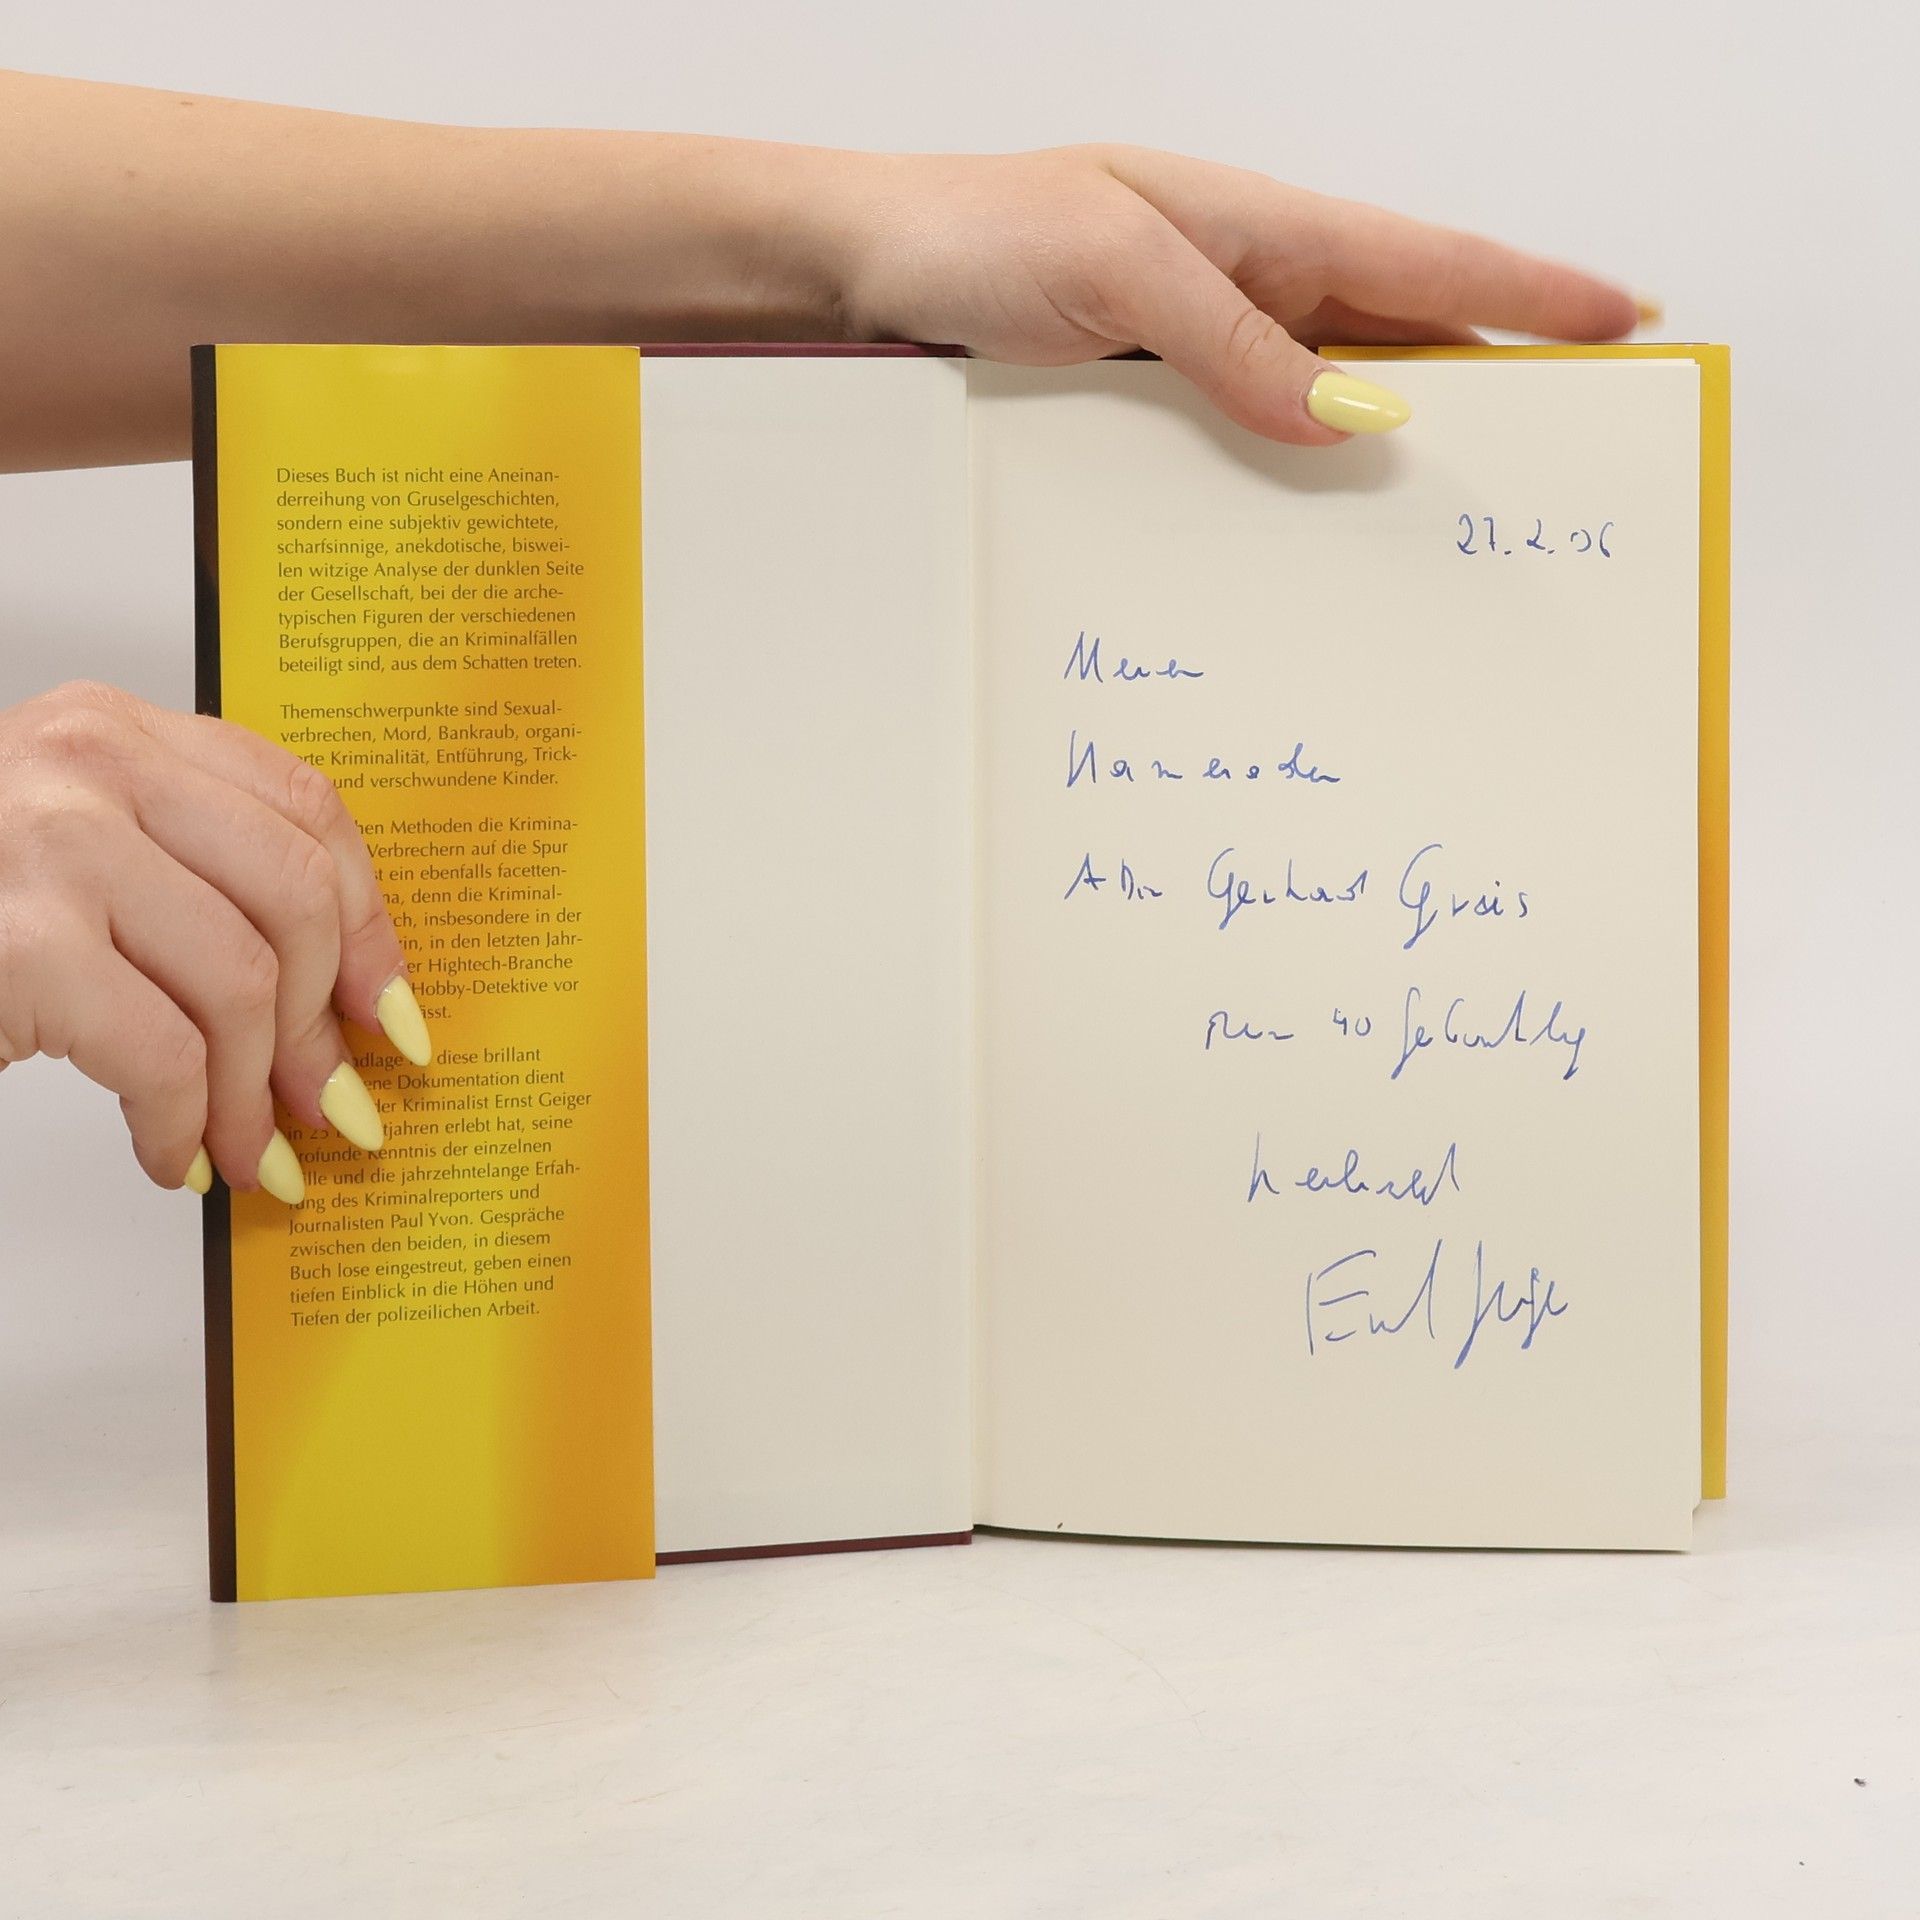 Dieses Buch ist nicht eine Aneinan-
derreihung von Gruselgeschichten,
sondern eine subjektiv gewichtete,
scharfsinnige, anekdotische, biswei-
len witzige Analyse der dunklen Seite
der Gesellschaft, bei der die arche-
typischen Figuren der verschiedenen
Berufsgruppen, die an Kriminalfällen
beteiligt sind, aus dem Schatten treten.
Themenschwerpunkte sind Sexual-
verbrechen, Mord, Bankraub, organi-
rte Kriminalität, Entführung, Trick-
und verschwundene Kinder.
hen Methoden die Krimina-
Verbrechern auf die Spur
st ein ebenfalls facetten-
na, denn die Kriminal-
ich, insbesondere in der
rin, in den letzten Jahr-
er Hightech-Branche
Hobby-Detektive vor
ässt.
dlage diese brillant
ene Dokumentation dient
der Kriminalist Ernst Geiger
in 25 tjahren erlebt hat, seine
rofunde Kenntnis der einzelnen
lle und die jahrzehntelange Erfah-
rung des Kriminalreporters und
Journalisten Paul Yvon. Gespräche
zwischen den beiden, in diesem
Buch lose eingestreut, geben einen
tiefen Einblick in die Höhen und
Tiefen der polizeilichen Arbeit.
27.2.06
Meinen
Kameraden
Gerhard
zum 40 Geburtstag
herzlichst
Ernst Geiger